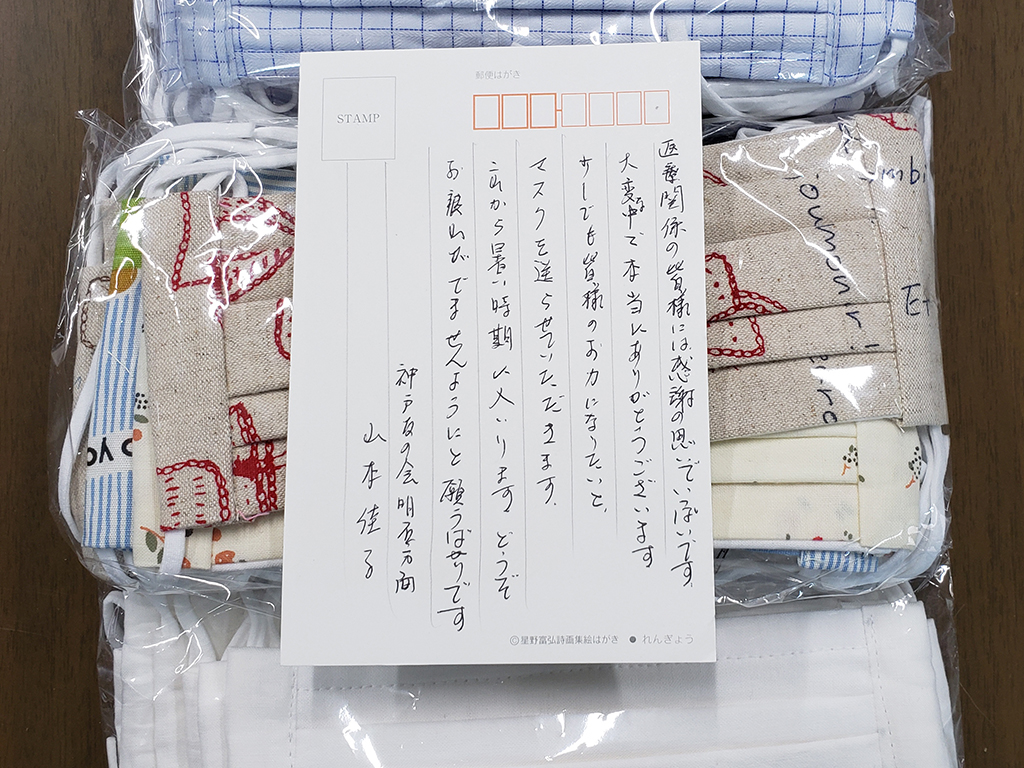 郵便はがき
STAMP
医療関係の皆様には感謝の思いでいっぱいです
大変な中で本当にありがとうございます
少しでも皆様のお力になりたいと、
マスクを送らせていただきます。
これから暑い時期に入いります どうぞ
お疲れがでませんようにと願うばかりです
神戸友の会 明石方面
山本佳子
©星野富弘詩画集絵はがき ● れんぎょう